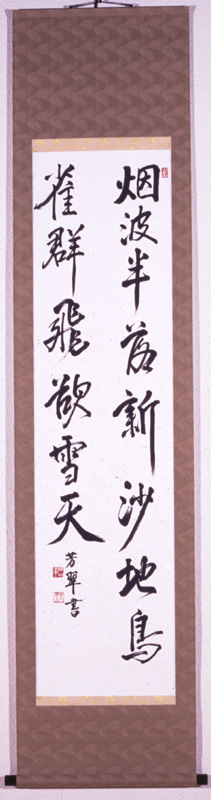 烟波半落新沙地鳥
雀群飛欲雪天
芳翠書